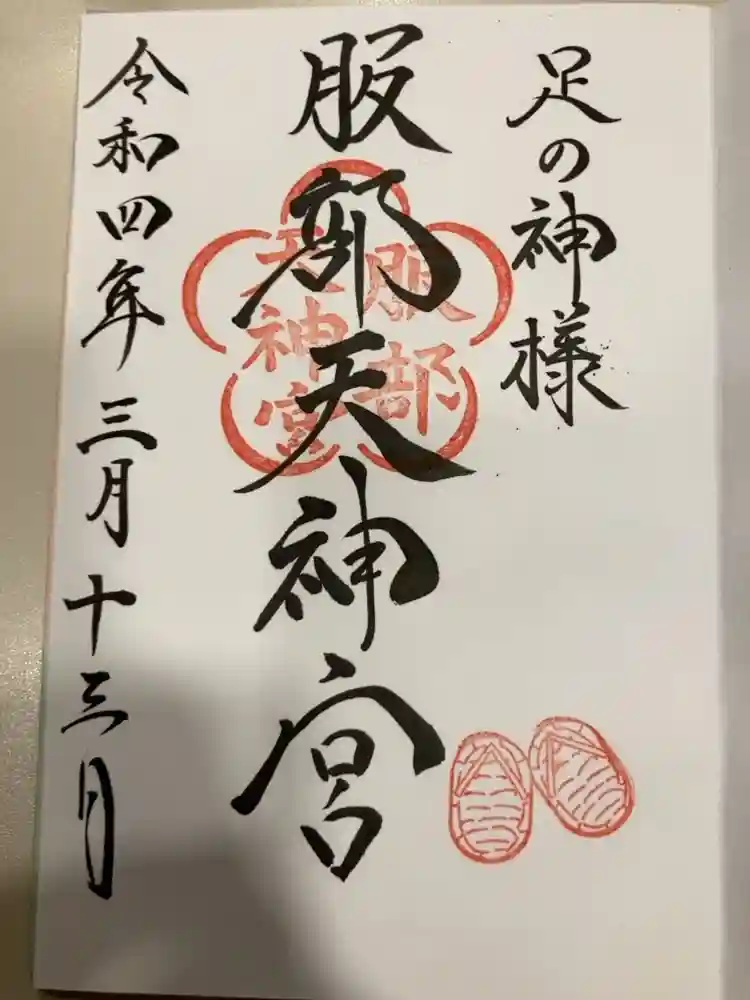 足の神様
服部天神宮
服部
天神宮
令和四年三月十三日